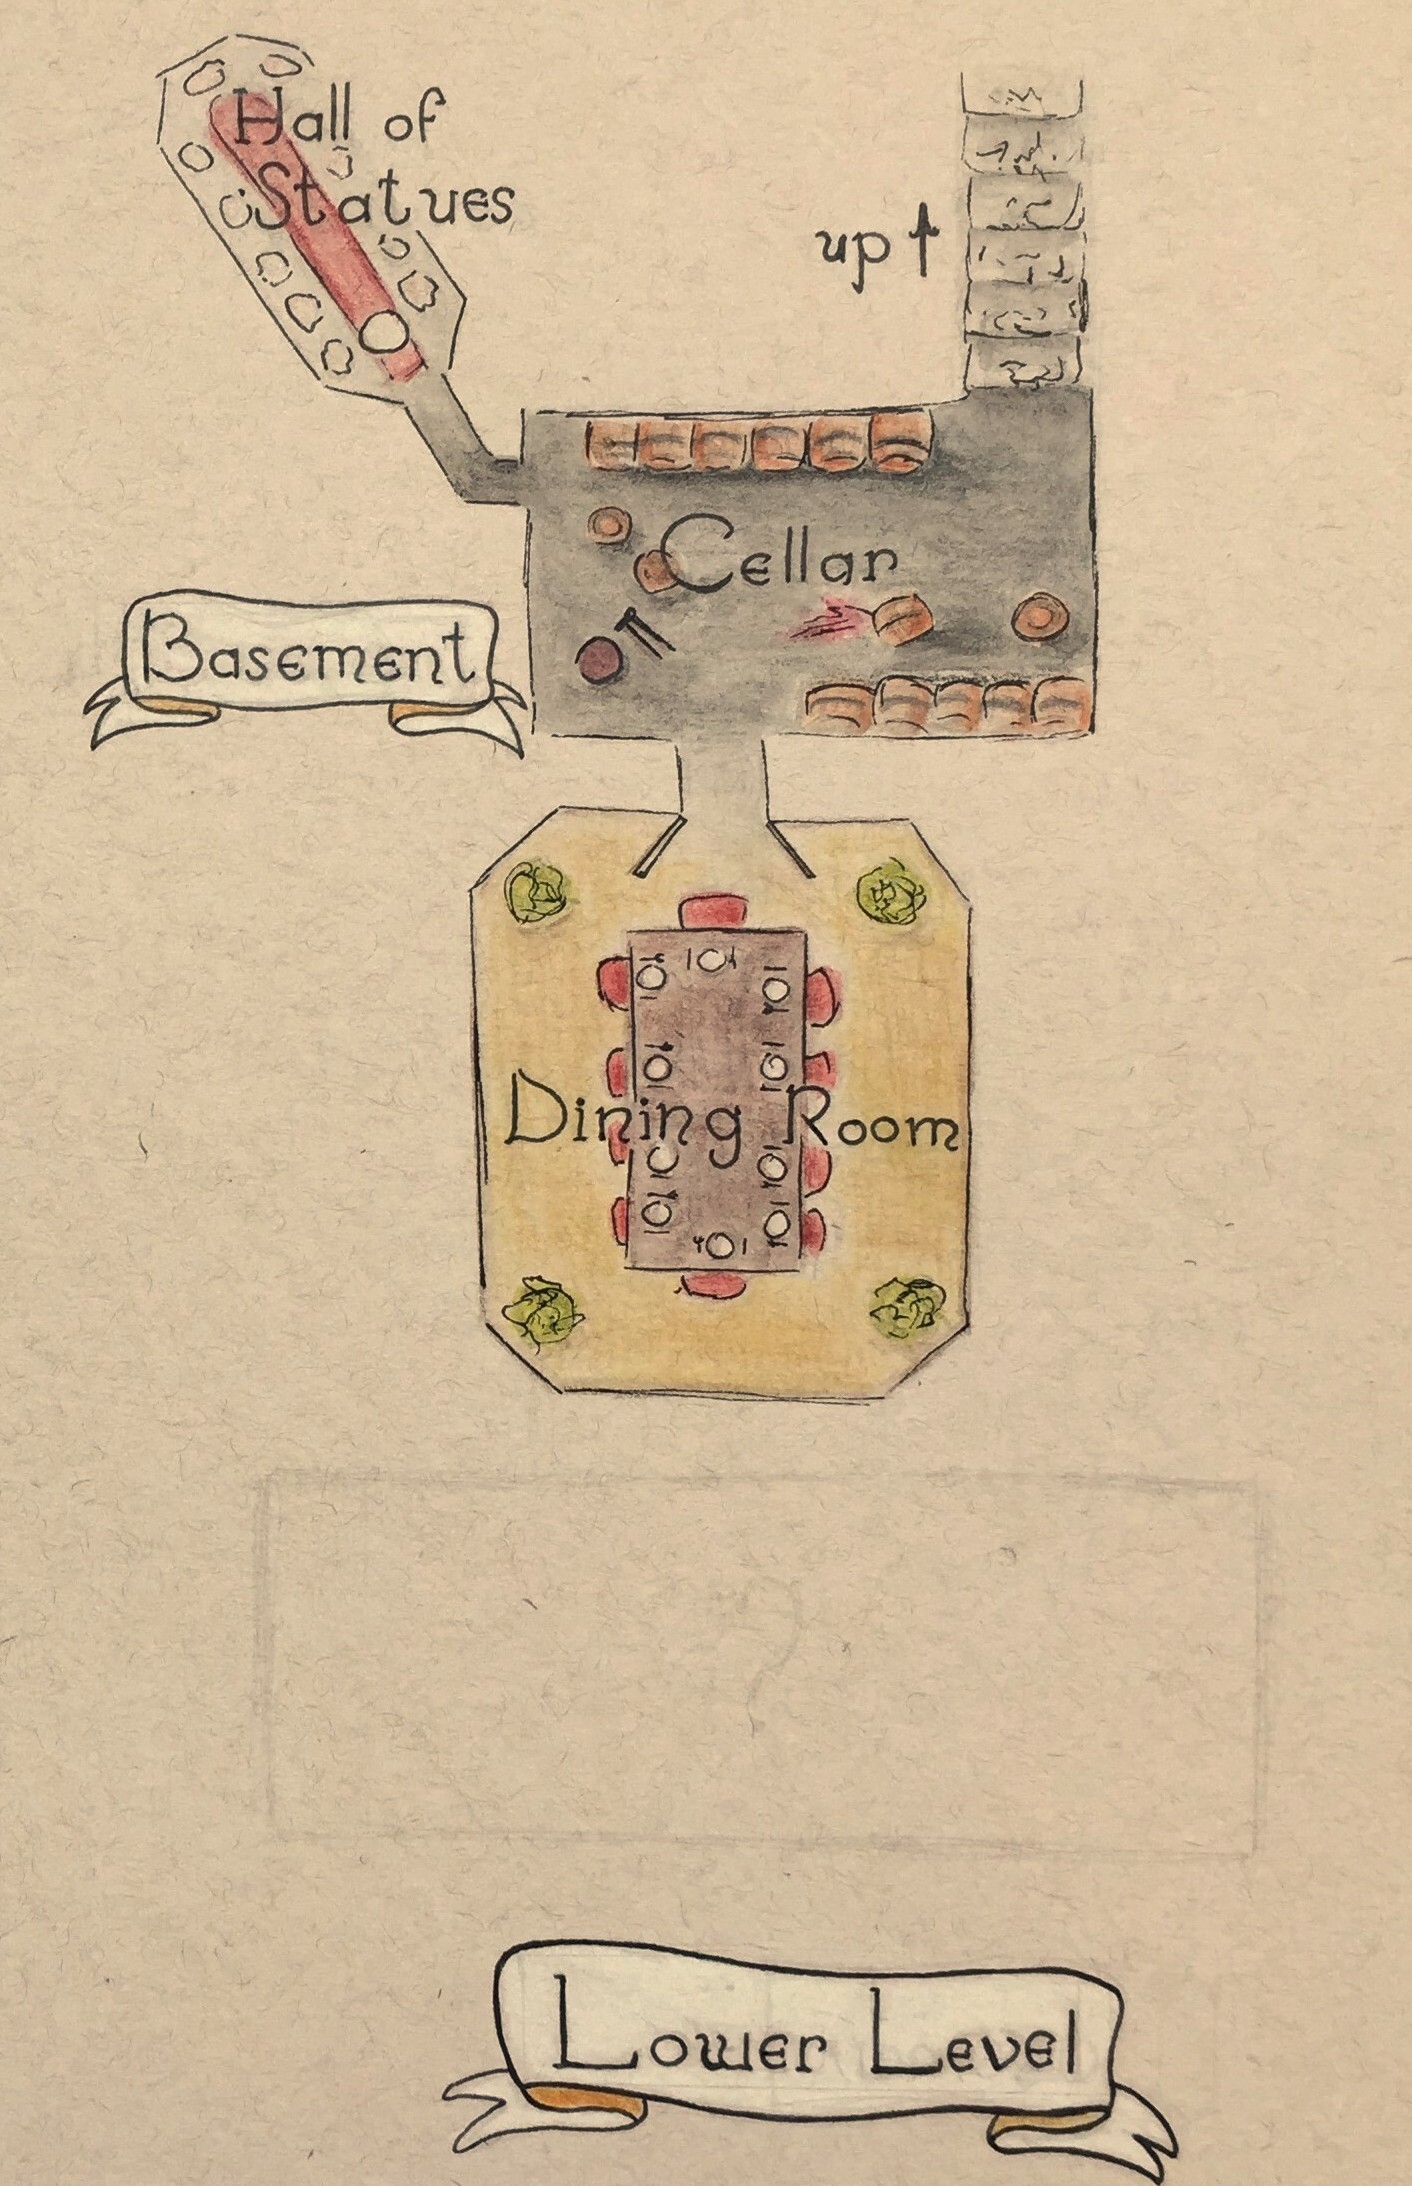 Hall of
Statues
up
Cellar
Basement
Dining Room
?
Lower Level